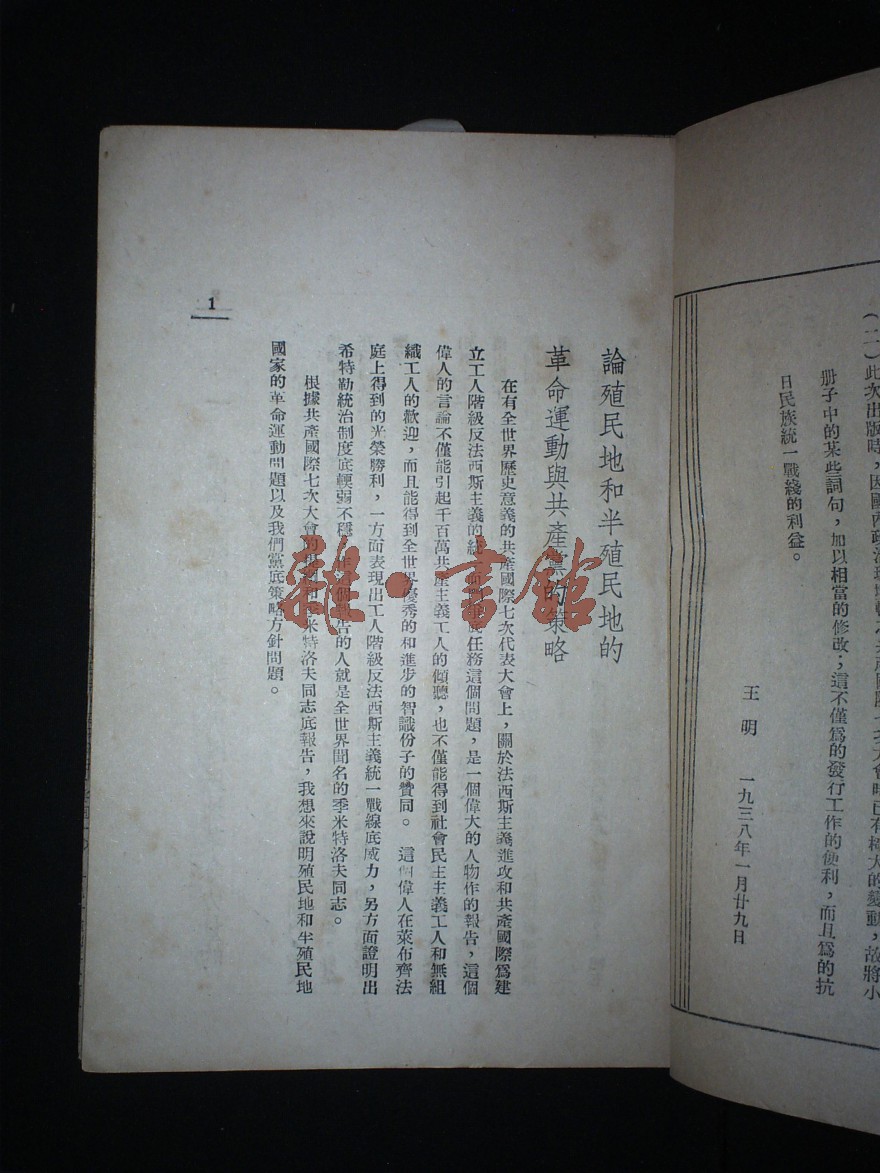 (二)此次出版時,因國內政治
七次大會時已有極大的變動,故將小
册子中的某些詞句,加以相當的修改;這不僅爲的發行工作的便利,而且爲的抗
日民族統一戰綫的利益。
王明 一九三八年一月廿九日
論殖民地和半殖民地的
革命運動與共產黨的策略
在有全世界歷史意義的共產國際七次代表大會上,關於法西斯主義進攻和共產國際爲建
立工人階級反法西斯主義的統一
任務這個問題,是一個偉大的人物作的報告,這個
偉人的言論不僅能引起千百萬共產主義工人的傾聽,也不僅能得到社會民主主義工人和無組
織工人的歡迎,而且能得到全世界優秀的和進步的智識份子的贊同。這個偉人在萊布齊法
庭上得到的光榮勝利,一方面表現出工人階級反法西斯主義統一戰線底威力,另方面證明出
希特勒統治制度底輭弱不穩
報告的人就是全世界聞名的季米特洛夫同志。
根據共產國際七次大會的
季米特洛夫同志底報告,我想來說明殖民地和半殖民地
國家的革命運動問題以及我們黨底策略方針問題。
1
雜·書館